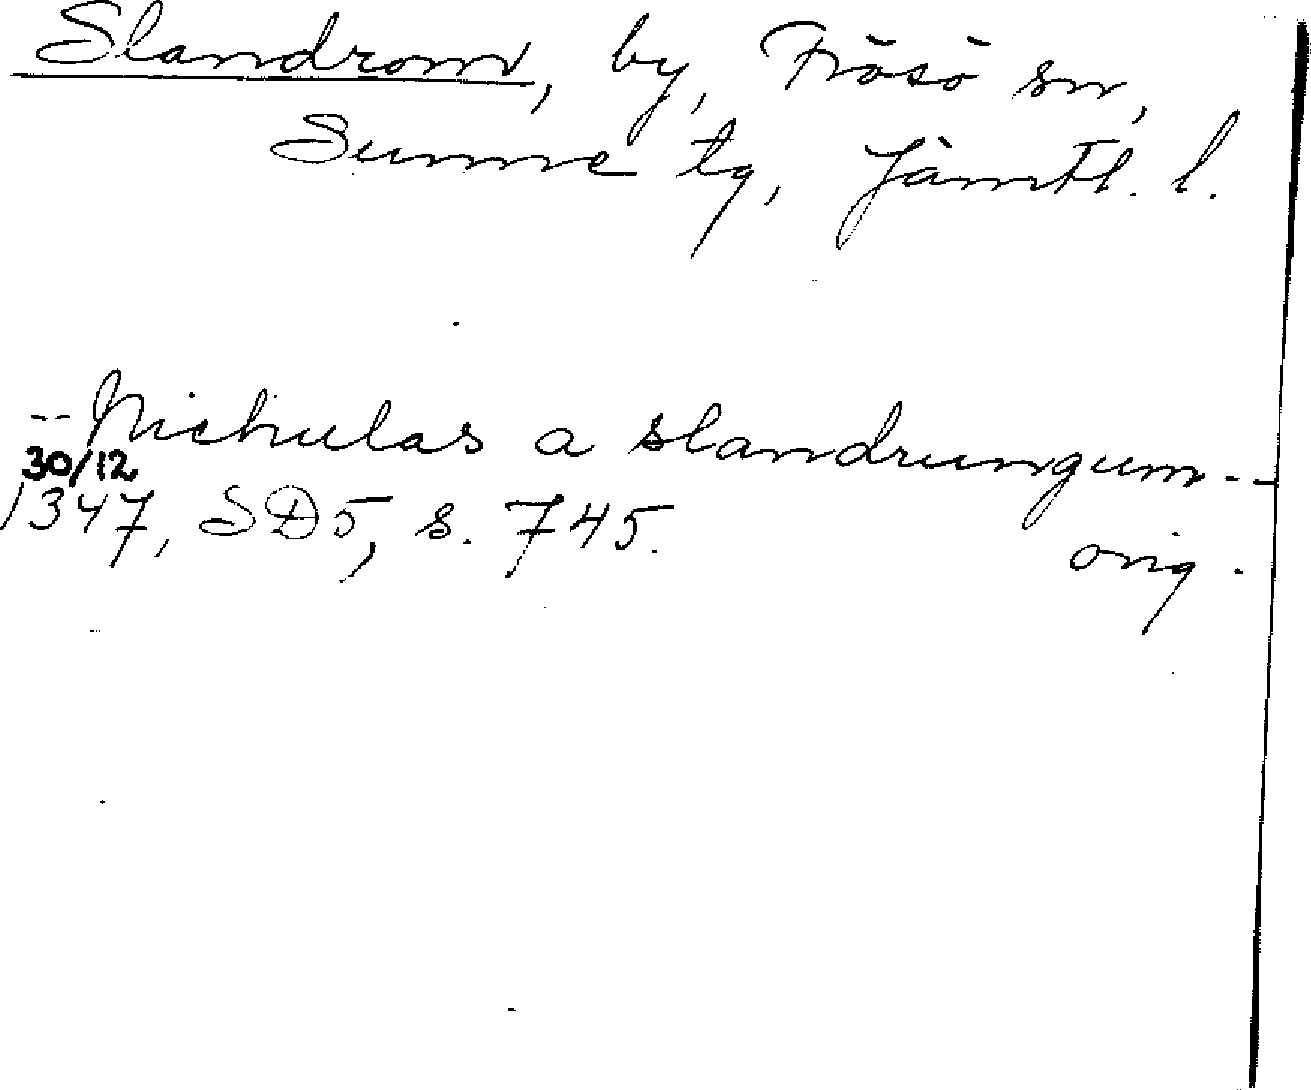 Slandrom, by, Frösö sn,
Sunne tg, Jämtl. l.
-- Nichulas a slandrungum --
30/12
1347, SD5, s. 745.
orig.